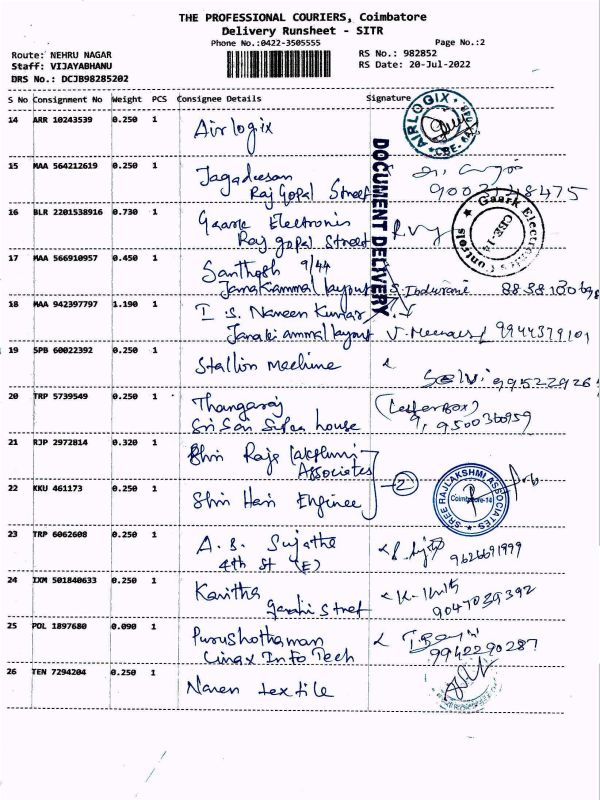 THE PROFESSIONAL COURIERS, Coimbatore
Delivery Runsheet - SITR
Phone No.:0422-3505555
Page No.:2
Route: NEHRU NAGAR
RS No.: 982852
Staff: VIJAYABHANU
RS Date: 20-Jul-2022
DRS No.: DCJB98285202
S No Consignment No Weight PCS Consignee Details Signature
14 ARR 10243539 0.250 1 Airlogix
AIRLOGIX CBE
15 MAA 564212619 0.250 1 Jagadeesan
Raj Gopal Street
DOCUMENT DELIVERY
16 BLR 2201538916 0.730 1 Gaark Electronis
Raj gopal Street
Gaark Electronics Controls
CBE-14
17 MAA 566910957 0.450 1 Santhosh 9/44
Janakiammal layout
18 MAA 942397797 1.190 1 I. S. Naveen Kumar
Janaki ammal layout 9944379101
19 SPB 60022392 0.250 1 Stallion Machine
Selvi
20 TRP 5739549 0.250 1 Thangaraj (Letter Box)
Sri Sai house 9500360959
21 RJP 2972814 0.320 1 Shri Raja lakshmi
Associates
2
22 KKU 461173 0.250 1 Shri Hari Enginee
SREE RAJLAKSHMI ASSOCIATES
Coimbatore-14
23 TRP 6062608 0.250 1 A. S. Sujatha
4th St (E) 9626691999
24 IXM 501840633 0.250 1 Kavitha
Gandhi Street 9047039392
25 POL 1897680 0.090 1 Purushothaman
Cinax Info Tech 9942290287
26 TEN 7294204 0.250 1 Naren textile